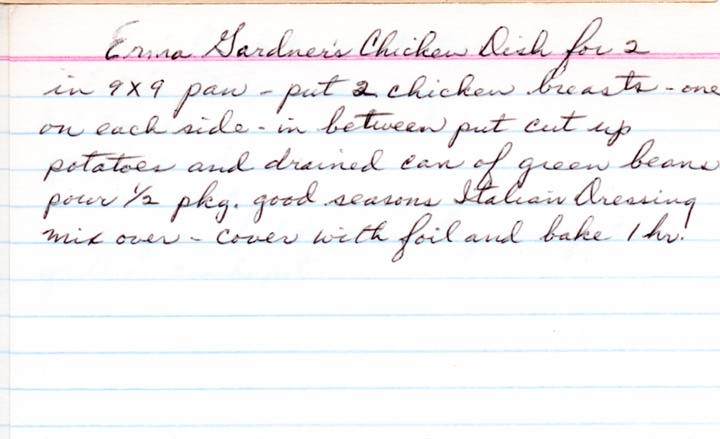 Erma Gardner's Chicken Dish for 2
in 9x9 pan - put 2 chicken breasts - one
on each side - in between put cut up
potatoes and drained can of green beans
pour 1/2 pkg. good seasons Italian Dressing
mix over - cover with foil and bake 1 hr.